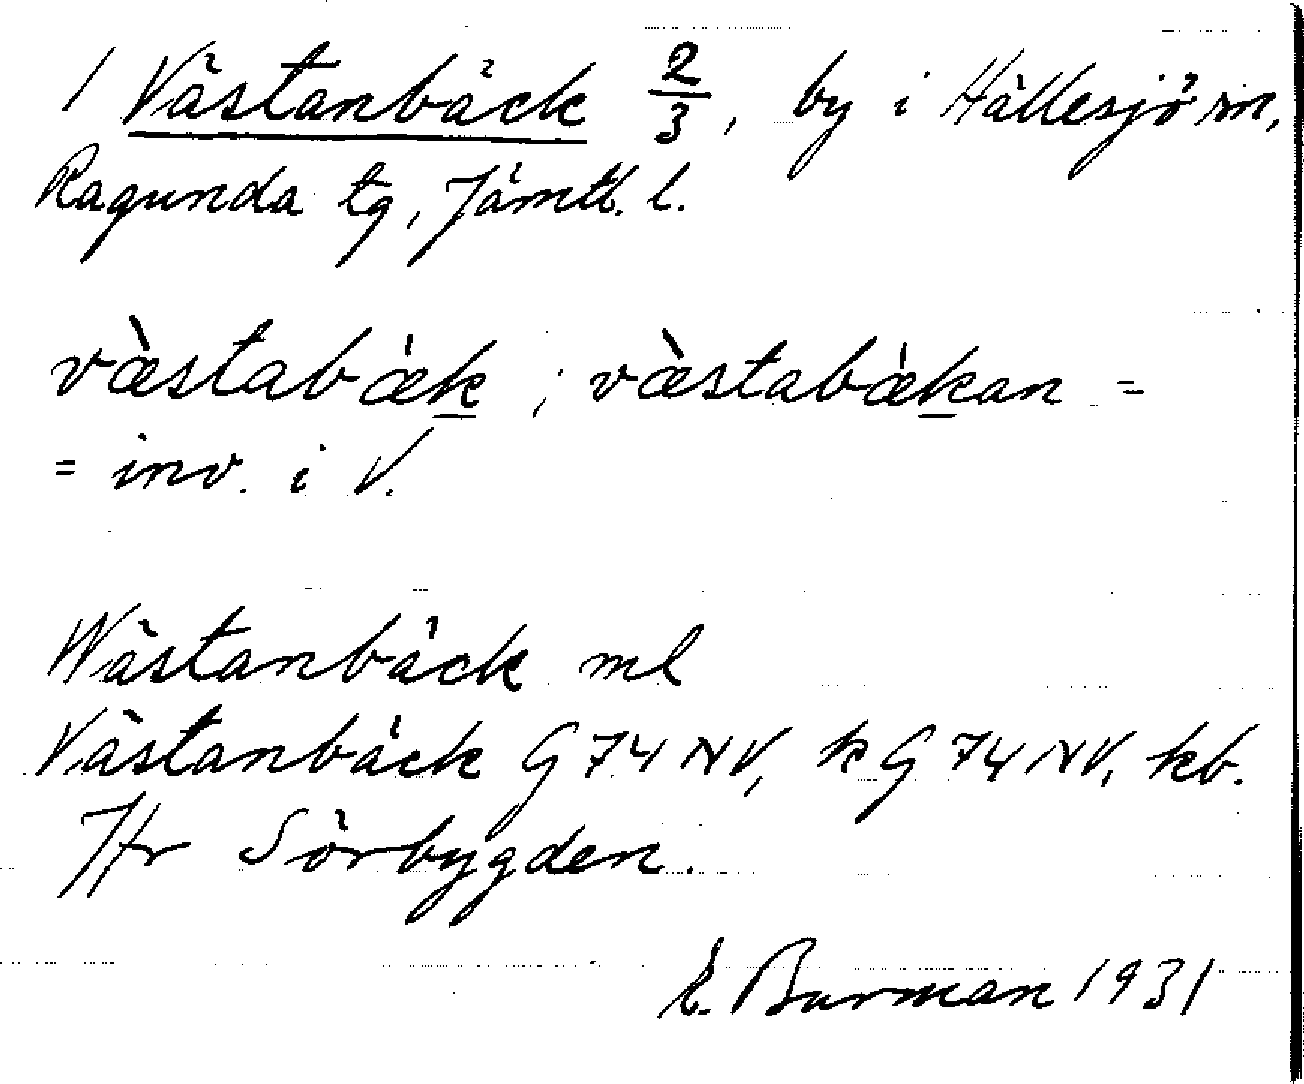 1 Västanbäck 2/3, by i Hällesjö sn,
Ragunda tg, Jämtl. l.
væ̀stabæ̀k ; væ̀stabæ̀kan =
= inv. i V.
Wästanbäck ml
Västanbäck G 74 NV, k G 74 NV, kb.
Jfr Sörbygden.
E. Burman 1931